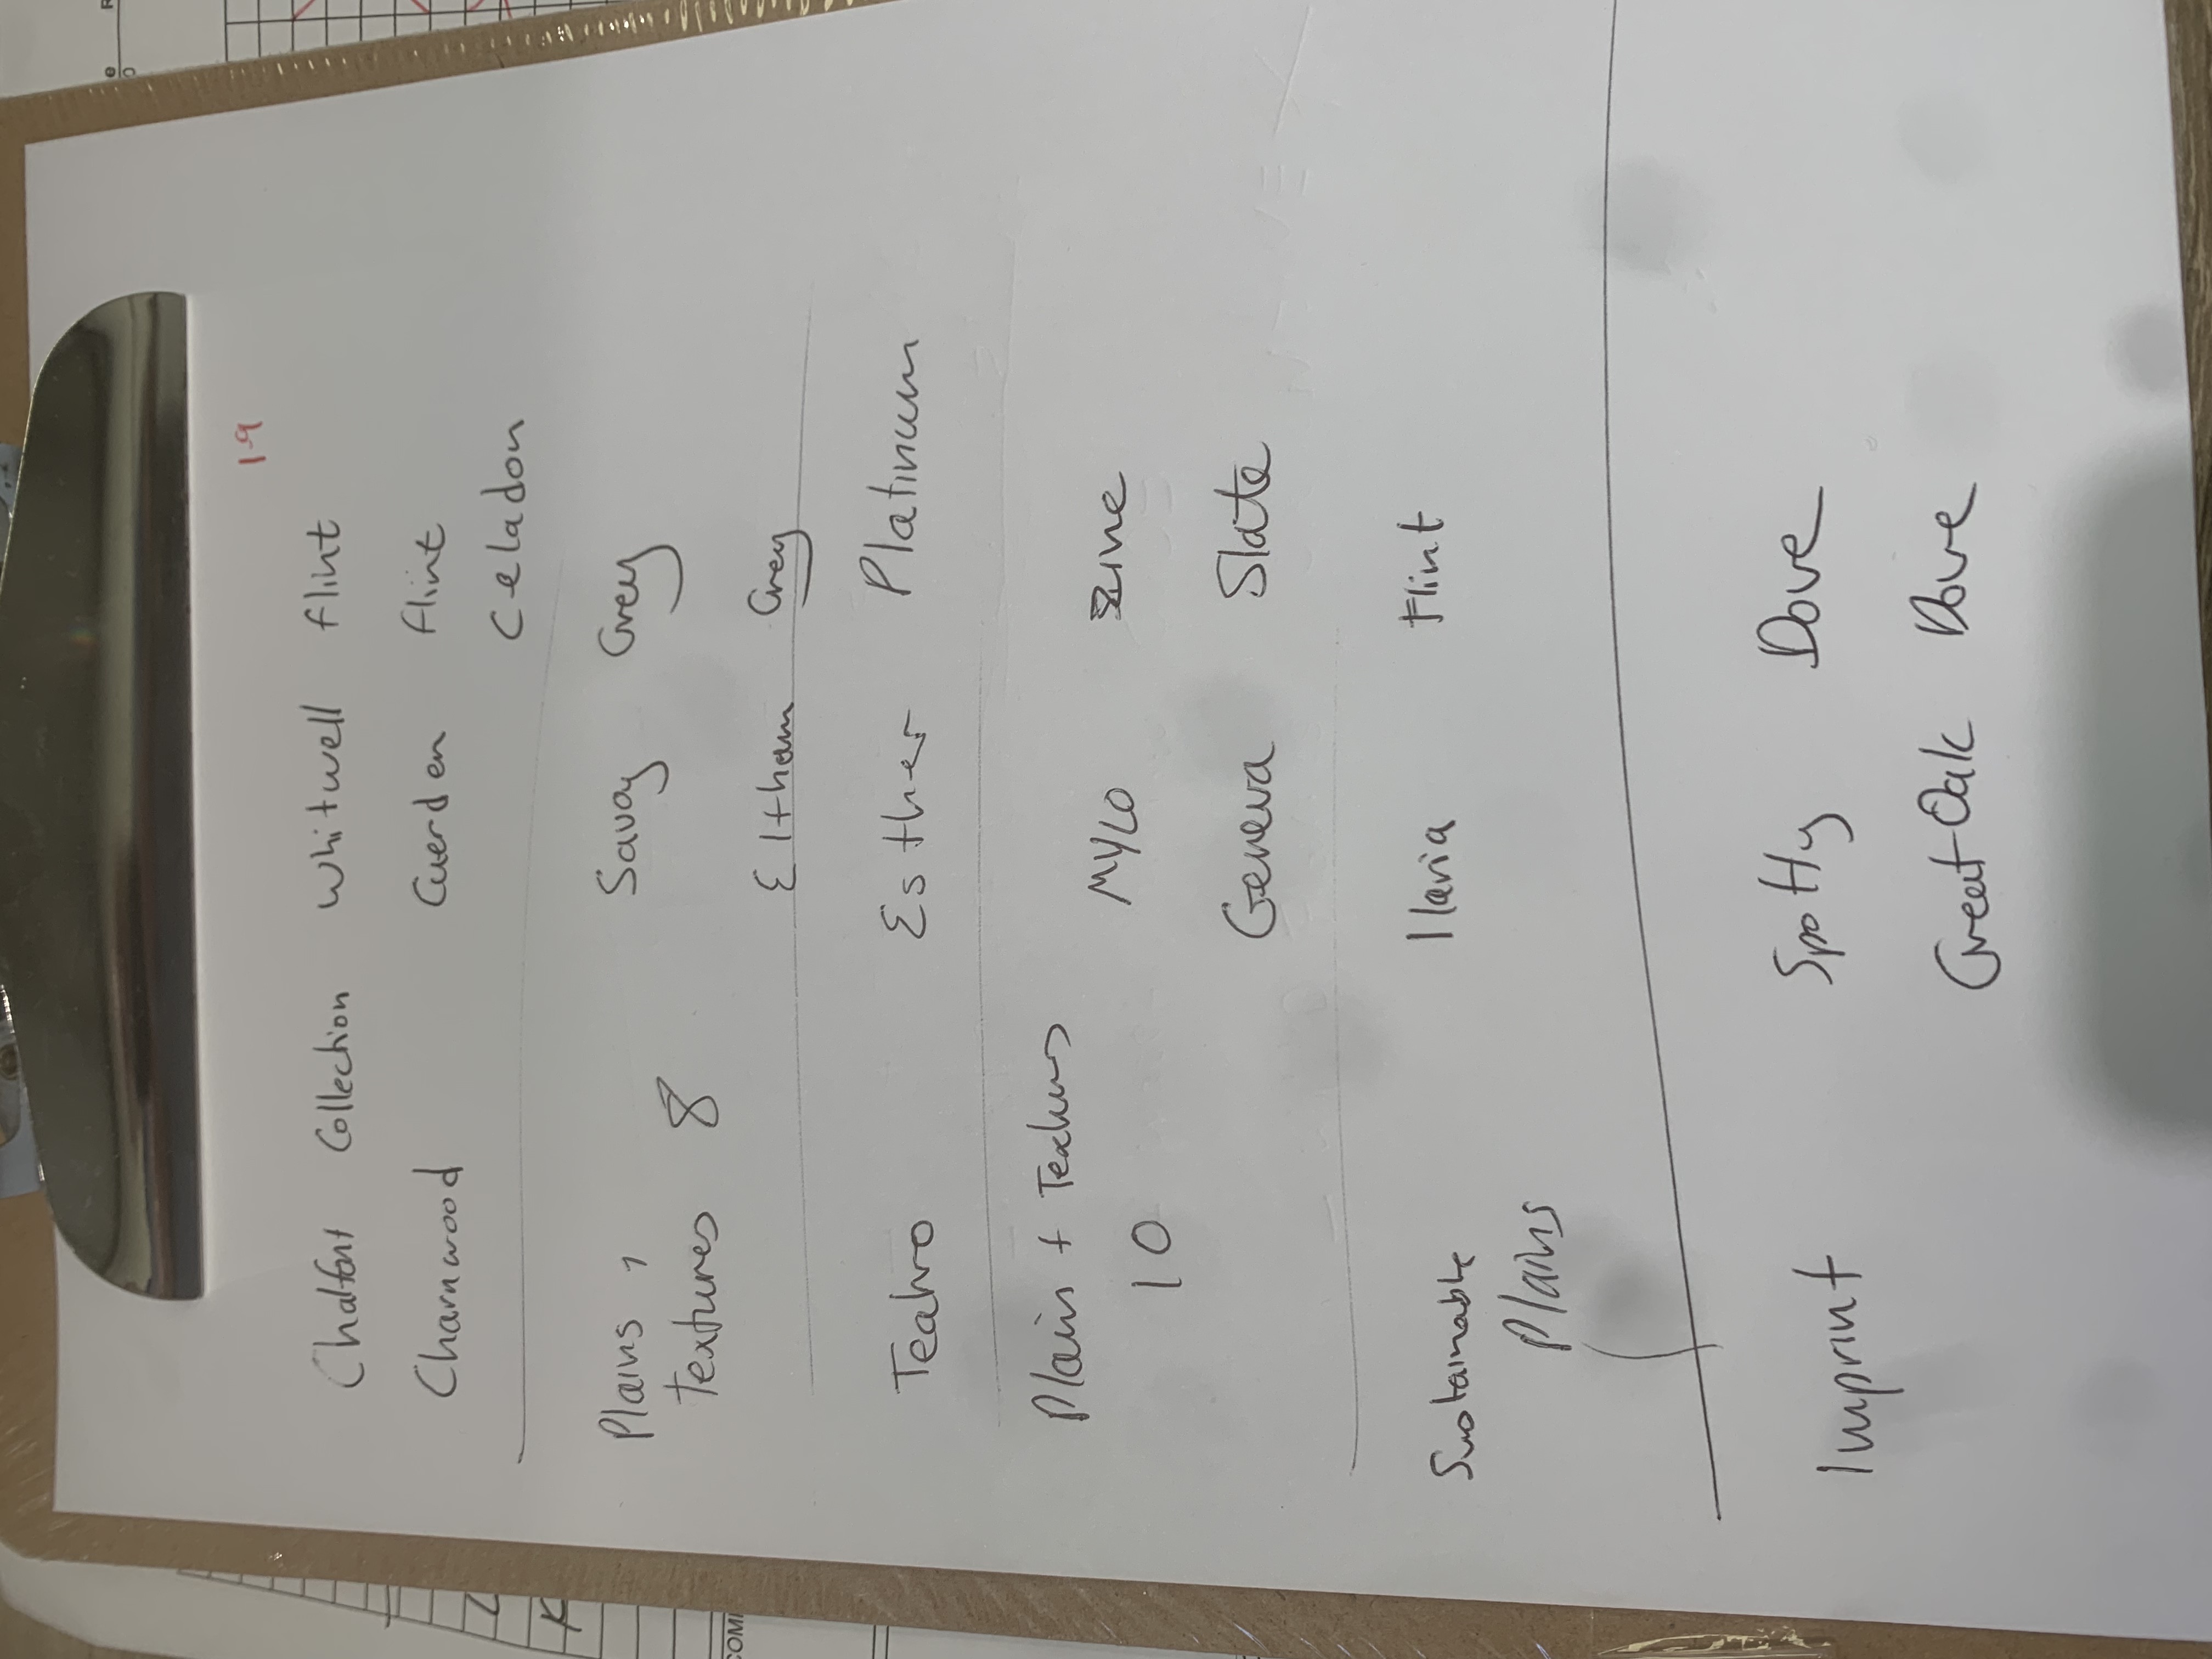 19
Chalfont Collection Whitwell flint
Charnwood Cuerden flint
Celadon
Plains, Savoy Grey
Textures 8
Eltham Grey
Teatro Esther Platinum
Plains + Textures Mylo Zinc
10
Geneva Slate
Sustainable Ilaria Flint
Plains
Imprint Spotty Dove
Great Oak Dove